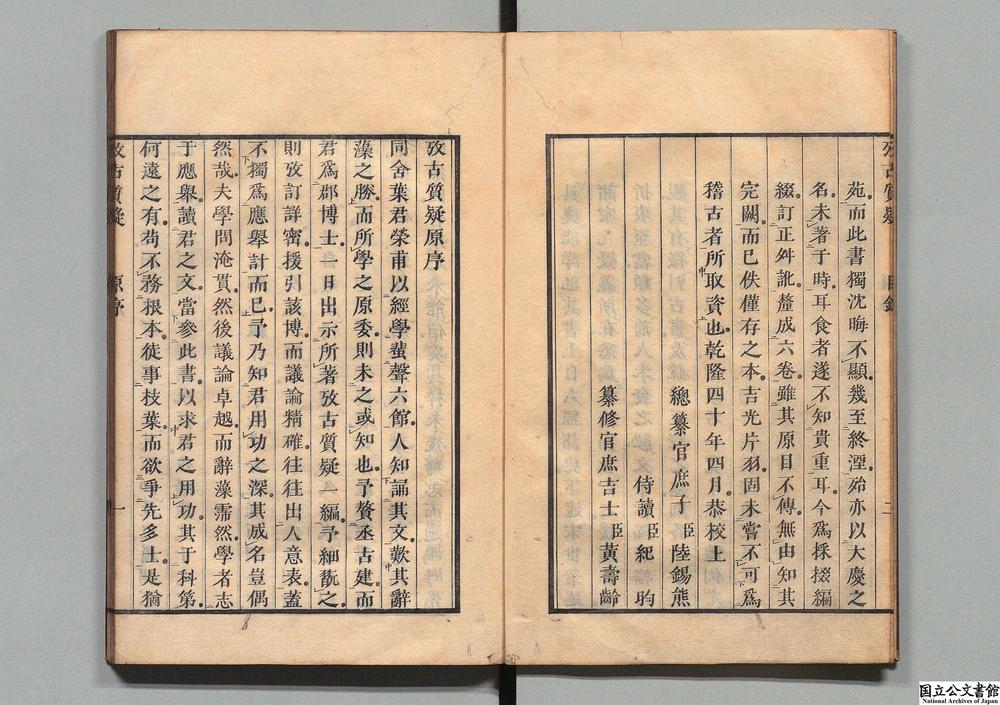 攷古質疑 目錄 二
苑而此書獨沈晦不顯幾至終湮殆亦以大慶之
名未著于時耳食者遂不知貴重耳今為採掇編
綴訂正舛訛釐成六卷雖其原目不傳無由知其
完闕而已佚僅存之本吉光片羽固未嘗不可為
稽古者所取資也乾隆四十年四月恭校上
總纂官庶子臣陸錫熊
侍讀臣紀昀
纂修官庶吉士臣黃壽齡
攷古質疑原序
同舍葉君榮甫以經學蜚聲六館人知誦其文歎其辭
藻之勝而所學之原委則未之或知也予贅丞古建而
君為郡博士一日出示所著攷古質疑一編予細翫之
則攷訂詳密援引該博而議論精確往往出人意表蓋
不獨為應舉計而已予乃知君用功之深其成名豈偶
然哉夫學問淹貫然後議論卓越而辭藻霈然學者志
于應舉讀君之文當參此書以求君之用功其于科第
何遠之有苟不務根本徒事枝葉而欲爭先多士是猶
攷古質疑 原序 一
国立公文書館
National Archives of Japan